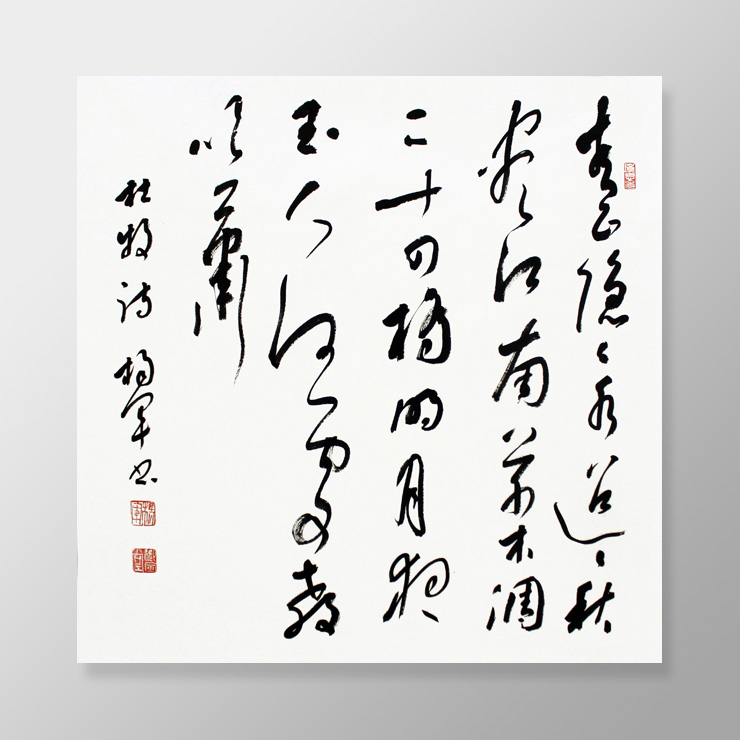 青山隐隐水迢迢秋
尽江南草木凋
二十四桥明月夜
玉人何处教
吹箫
杜牧诗 杨军书